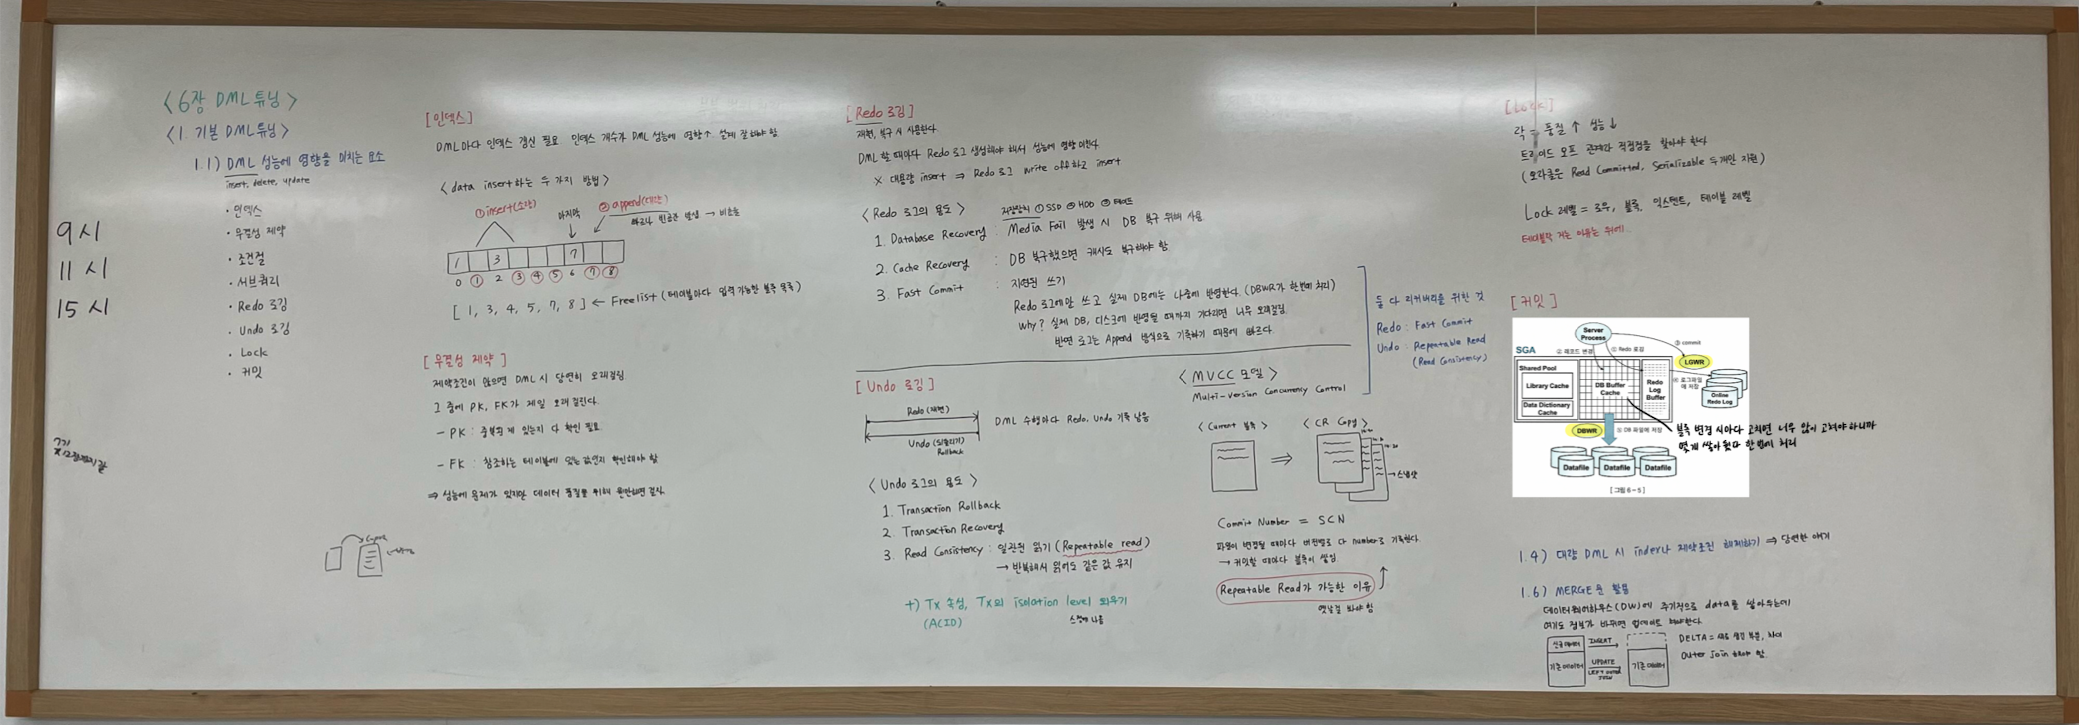 <6장 DML튜닝>
<1. 기본 DML튜닝>
1.1) DML 성능에 영향을 미치는 요소
insert, delete, update
· 인덱스
· 무결성 제약
· 조건절
· 서브쿼리
· Redo 로깅
· Undo 로깅
· Lock
· 커밋
9시
11시
15시
[인덱스]
DML마다 인덱스 갱신 필요 인덱스 개수가 DML 성능에 영향↑ 설계 잘해야 함
<data insert하는 두 가지 방법>
①insert(소량)
마지막
② append(대량)
빠르나 빈공간 발생 → 비효율
1 3 7
0 ① 2 ③ ④ ⑤ 6 ⑦ ⑧
[1, 3, 4, 5, 7, 8] ← Freelist (테이블마다 입력가능한 블록 목록)
[무결성 제약]
제약조건이 많으면 DML 시 당연히 오래걸림.
그 중에 PK, FK가 제일 오래 걸린다.
- PK : 중복된 게 있는지 다 확인 필요
- FK : 참조하는 테이블에 있는 값인지 확인해야 함
⇒ 성능에 문제가 있지만 데이터 품질을 위해 웬만하면 검사.
[Redo 로깅]
재현, 복구 시 사용한다.
DML 할 때마다 Redo 로그 생성해야 해서 성능에 영향 미친다
× 대용량 insert ⇒ Redo 로그 write off 하고 insert
<Redo 로그의 용도>
저장장치 ① SSD ② HDD ③ 테이프
1. Database Recovery : Media Fail 발생 시 DB 복구 위해 사용
2. Cache Recovery : DB 복구했으면 캐시도 복구해야 함
3. Fast Commit : 지연된 쓰기
Redo 로그에만 쓰고 실제 DB에는 나중에 반영한다. (DBWR가 한번에 처리)
Why? 실제 DB, 디스크에 반영될 때까지 기다리면 너무 오래걸림.
반면 로그는 Append 방식으로 기록하기 때문에 빠르다.
둘 다 리커버리를 위한 것
Redo : Fast Commit
Undo : Repeatable Read
(Read Consistency)
[Undo 로깅]
Redo (재현)
Undo (되돌리기)
Rollback
DML 수행마다 Redo, Undo 기록 남음
<Undo 로그의 용도>
1. Transaction Rollback
2. Transaction Recovery
3. Read Consistency : 일관된 읽기 (Repeatable read)
→ 반복해서 읽어도 같은 값 유지
+) Tx 속성, Tx의 isolation level 외우기
(ACID)
<MVCC 모델>
Multi-Version Concurrency Control
<Current 블록>
<CR Copy>
→ 스냅샷
Commit Number = SCN
파일이 변경될 때마다 버전별로 다 number로 기록한다.
→ 커밋할 때마다 블록이 쌓임.
Repeatable Read가 가능한 이유
옛날걸 봐야 함
[Lock]
락 = 품질 ↑ 성능 ↓
트레이드 오프 관계라 적정점을 찾아야 한다
(오라클은 Read Committed, Serializable 두개만 지원)
Lock 레벨 = 로우, 블록, 익스텐트, 테이블 레벨
테이블락 거는 이유는 뒤에
[커밋]
Server Process
SGA
② 레코드 변경
① Redo 로깅
③ commit
LGWR
Shared Pool
Library Cache
Data Dictionary Cache
DB Buffer Cache
Redo Log Buffer
④ 로그파일에 저장
Online Redo Log
DBWR
⑤ DB 파일에 저장
Datafile Datafile Datafile
[그림 6-5]
블록 변경 시마다 고치면 너무 많이 고쳐야 하니까
몇개 쌓아뒀다 한 번에 처리
1.4) 대량 DML 시 index나 제약조건 해제하기 ⇒ 당연한 얘기
1.6) MERGE문 활용
데이터웨어하우스(DW)에 주기적으로 data를 쌓아두는데
여기도 정보가 바뀌면 업데이트 해야한다.
신규데이터 INSERT
기존데이터 UPDATE 기존데이터
LEFT OUTER JOIN
Outer Join 해야 함.